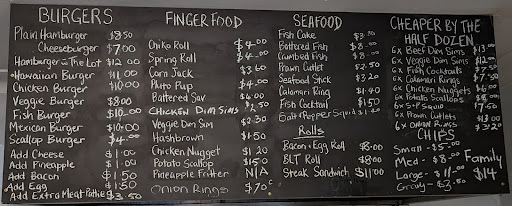 BURGERS
Plain Hamburger $8.50
Cheeseburger $7.00
Hamburger - The Lot $12.00
Hawaiian Burger $11.00
Chicken Burger $10.00
Veggie Burger $8.00
Fish Burger $10.00
Mexican Burger $10.00
Scallop Burger $4.00
Add Cheese $1.00
Add Pineapple $1.00
Add Bacon $1.50
Add Egg $1.50
Add Extra Meat Pattie $3.50
FINGER FOOD
Chiko Roll $4.00
Spring Roll $4.00
Corn Jack $3.60
Pluto Pup $4.00
Battered Sav $4.00
CHICKEN DIM SIMS $1.50
Veggie Dim Sim $2.30
Hashbrown $1.50
Chicken Nugget $1.20
Potato Scallop $1.50
Pineapple Fritter N/A
Onion Rings $.70c
SEAFOOD
Fish Cake $3.50
Battered Fish $8.00
Crumbed Fish $8.00
Prawn Cutlet $2.50
Seafood Stick $3.20
Calamari Ring $1.40
Fish Cocktail $1.50
Salt & Pepper Squid
Rolls
Bacon & Egg Roll $8.00
BLT Roll $8.00
Steak Sandwich $11.00
CHEAPER BY THE
HALF DOZEN
6x Beef Dim Sims $13.00
6x Veggie Dim Sims $12.00
6x Fish Cocktails $7.50
6x Calamari Rings $7.50
6x Chicken Nuggets $6.00
6x Potato Scallops $8.00
6x S+P Squid 7.50
6x Prawn Cutlets $13.00
6x Onion Rings $3.20
CHIPS
Small - $5.00
Med - $8.00 Family
Large - $11.00 $14
Gravy - $2.50